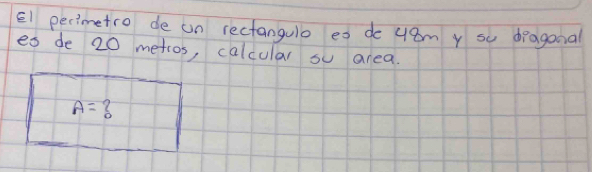 El perimetro de un rectangulo es de 48m y su diagonal
es de 20 metros, calcular su area.
A=?